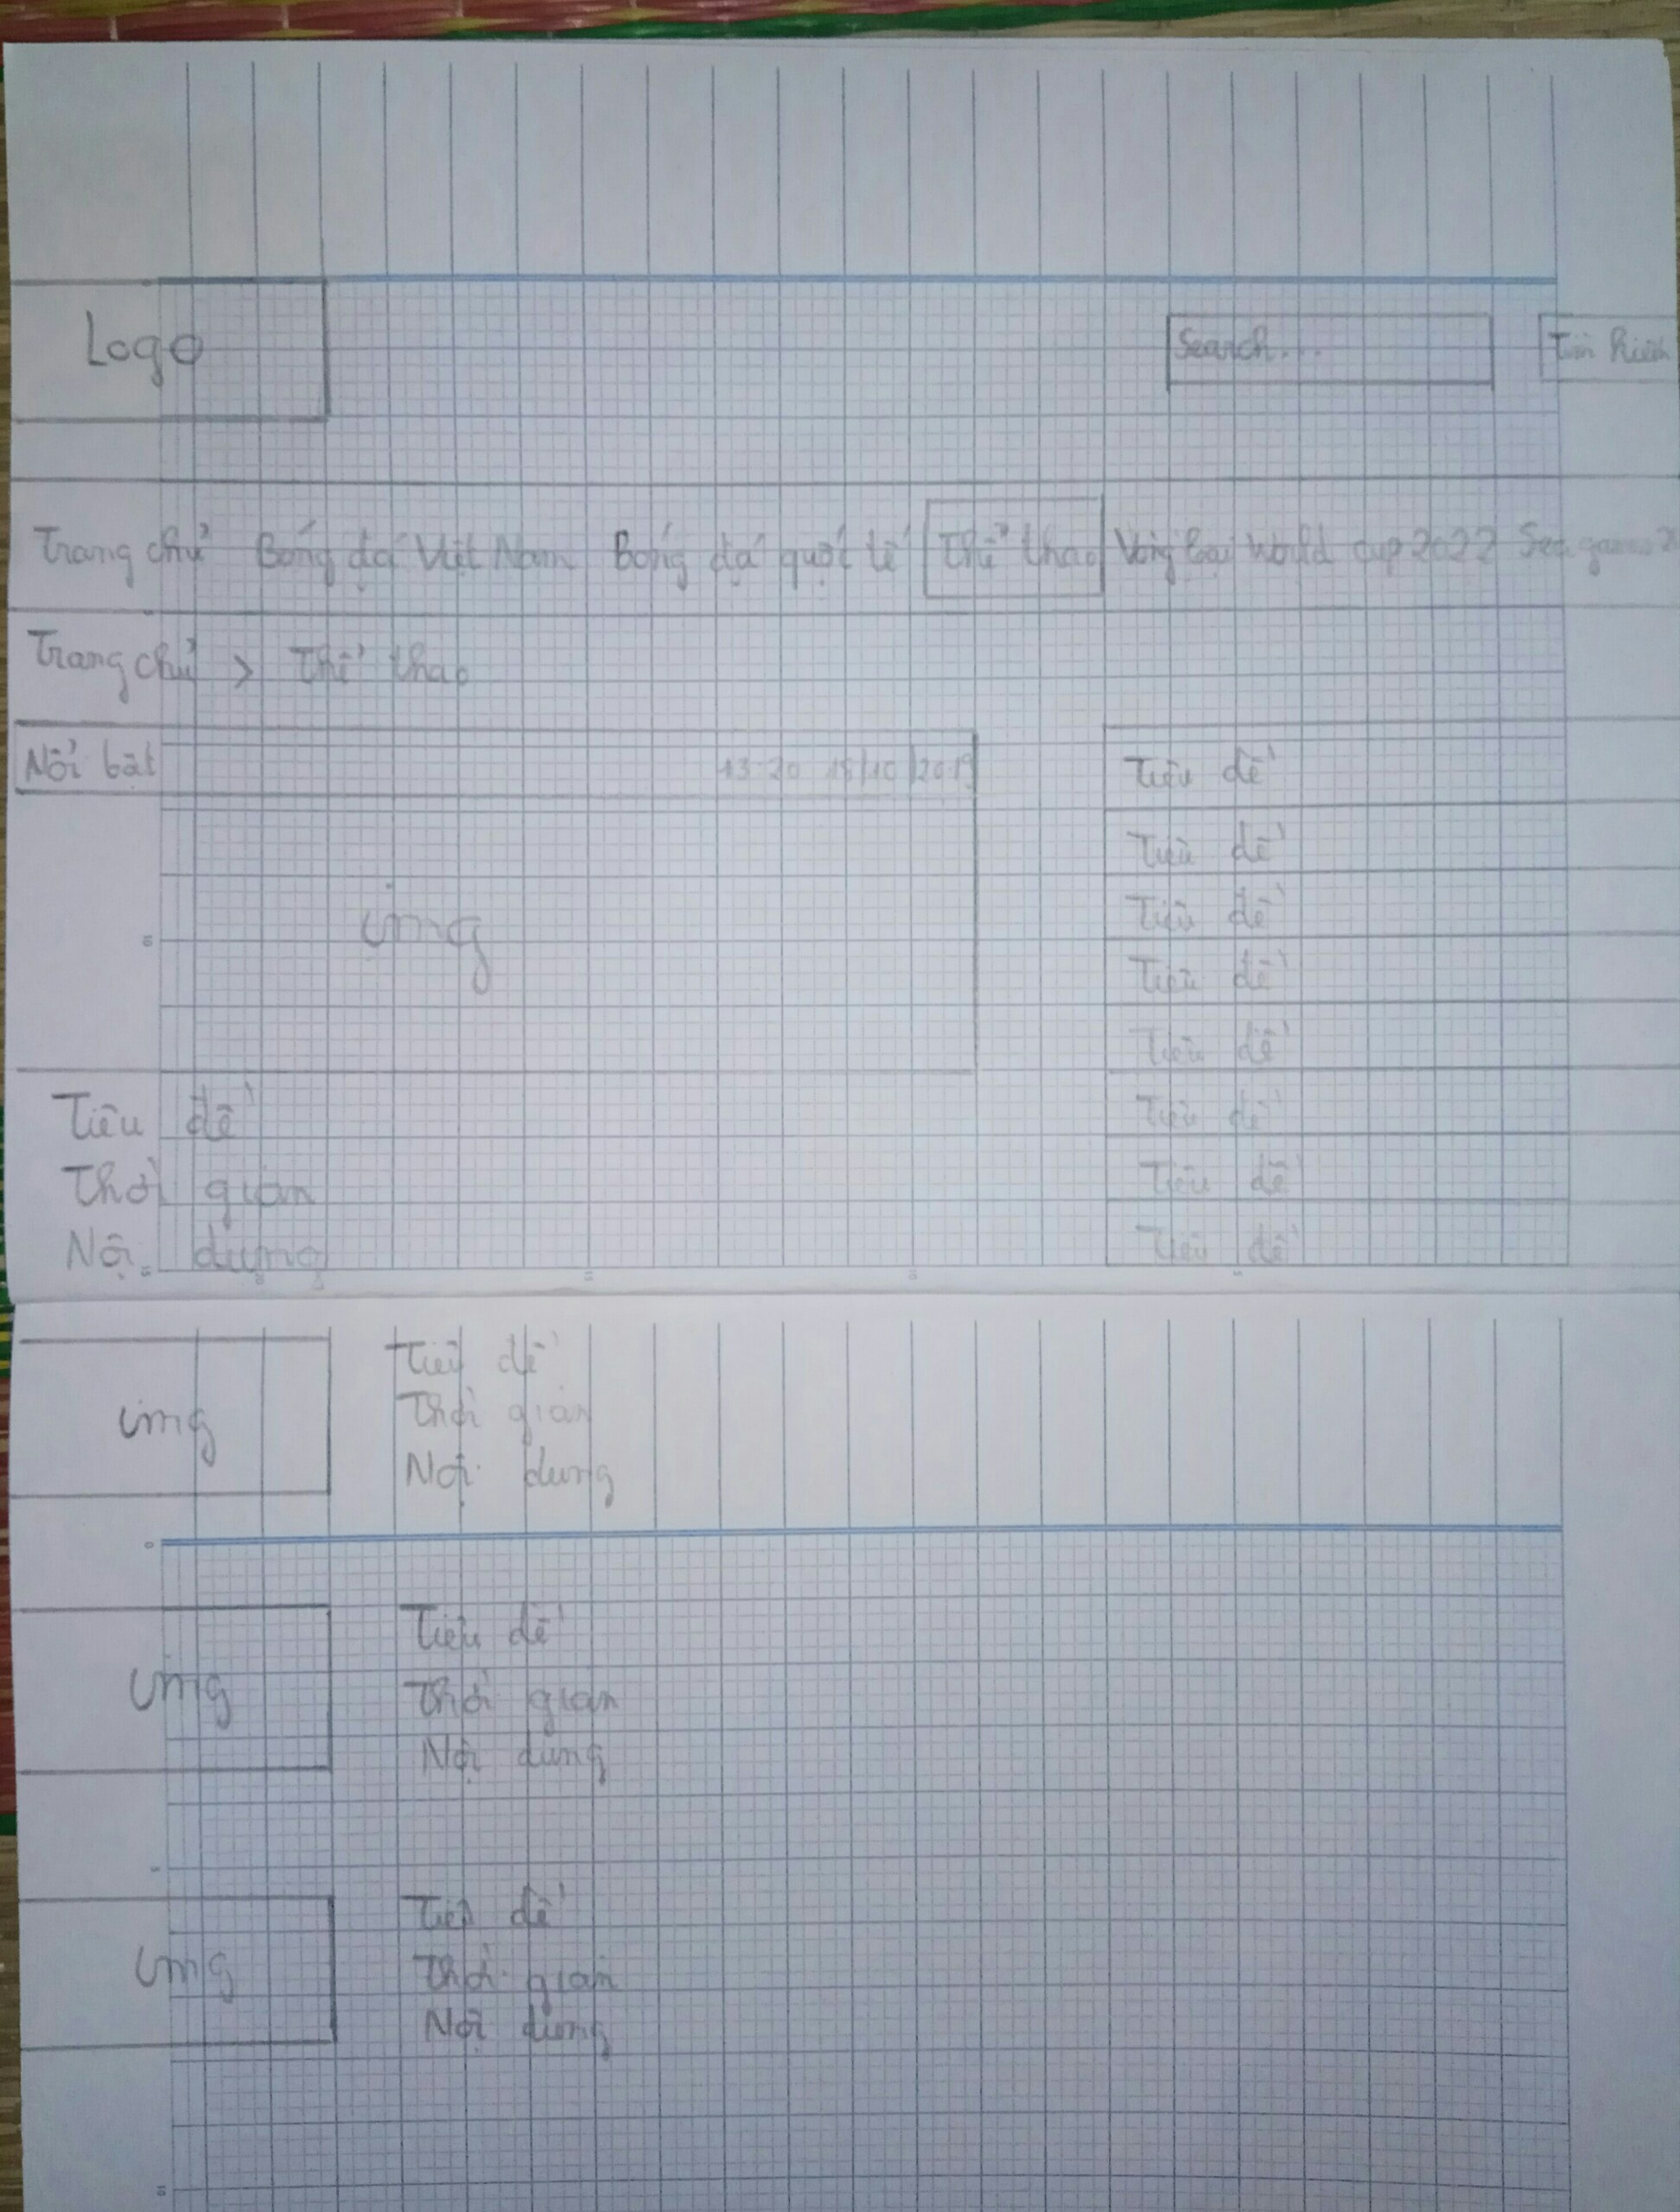 Logo
Search...
Tìm kiếm
Trang chủ Bóng đá Việt Nam Bóng đá quốt tế Thể thao Vòng loại World cup 2022 Sea games
Trang chủ > Thể thao
Nổi bật 13:20 18/10/2019
img
Tiêu đề
Tiêu đề
Tiêu đề
Tiêu đề
Tiêu đề
Tiêu đề
Tiêu đề
Tiêu đề
Tiêu đề
Thời gian
Nội dung
img
Tiêu đề
Thời gian
Nội dung
img
Tiêu đề
Thời gian
Nội dung
img
Tiêu đề
Thời gian
Nội dung